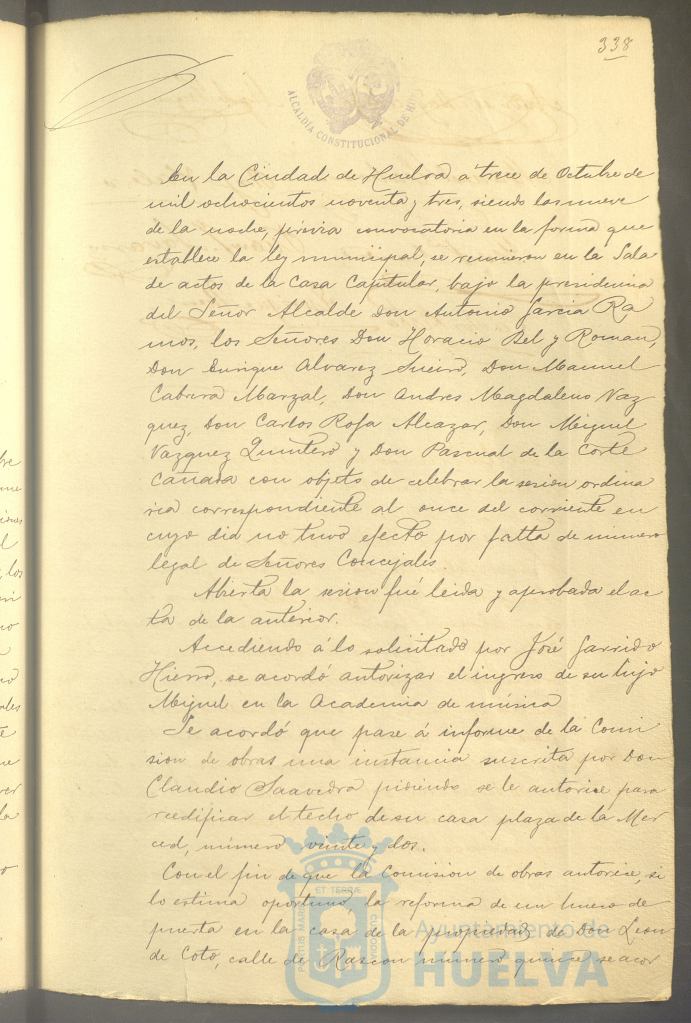 338
ALCALDÍA CONSTITUCIONAL DE HUELVA
En la Ciudad de Huelva a trece de Octubre de
mil ochocientos noventa y tres, siendo las nueve
de la noche, previa convocatoria en la forma que
establece la ley municipal, se reunieron en la Sala
de actos de la Casa Capitular, bajo la presidencia
del Señor Alcalde Don Antonio Garcia Ra
mos, los Señores Don Horacio Bel y Roman,
Don Enrique Alvarez Sueiro, Don Manuel
Cabrera Marzal, Don Andres Magdaleno Vaz
quez, Don Carlos Rofa Alcazar, Don Miguel
Vazquez Quintero y Don Pascual de la Corte
Cañada con objeto de celebrar la sesion ordina
ria correspondiente al once del corriente en
cuyo dia no tuvo efecto por falta de numero
legal de Señores Concejales.
Abierta la sesion fué leida y aprobada el ac
ta de la anterior.
Accediendo á lo solicitado por José Garrido
Hierro, se acordó autorizar el ingreso de su hijo
Miguel en la Academia de música
Se acordó que pase á informe de la Comi
sion de obras una instancia suscrita por Don
Claudio Saavedra pidiendo se le autorice para
reedificar el techo de su casa plaza de la Mer
ced, número veinte y dos.
Con el fin de que la Comision de obras autorice, si
lo estima oportuno, la reforma de un hueco de
puerta en la casa de la propiedad de Don Leon
de Coto, calle de Rascon número quince se acor
ET TERRÆ
PORTUS MARIS
CUSTODIA
Ayuntamiento de
HUELVA